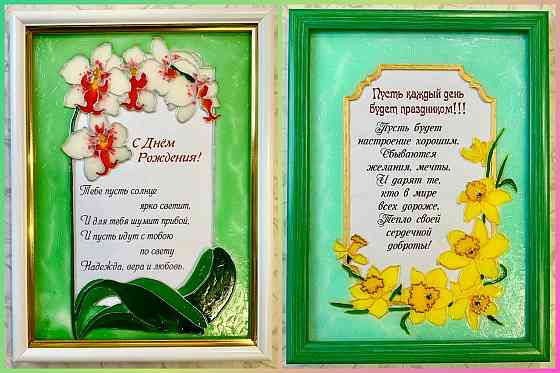 С Днём
Рождения!
Тебе пусть солнце
ярко светит,
И для тебя шумит прибой,
И пусть идут с тобою
по свету
Надежда, вера и любовь.
Пусть каждый день
будет праздником!!!
Пусть будет
настроение хорошим,
Сбываются
желания, мечты.
И дарят те,
кто в мире
всех дороже,
Тепло своей
сердечной
доброты!